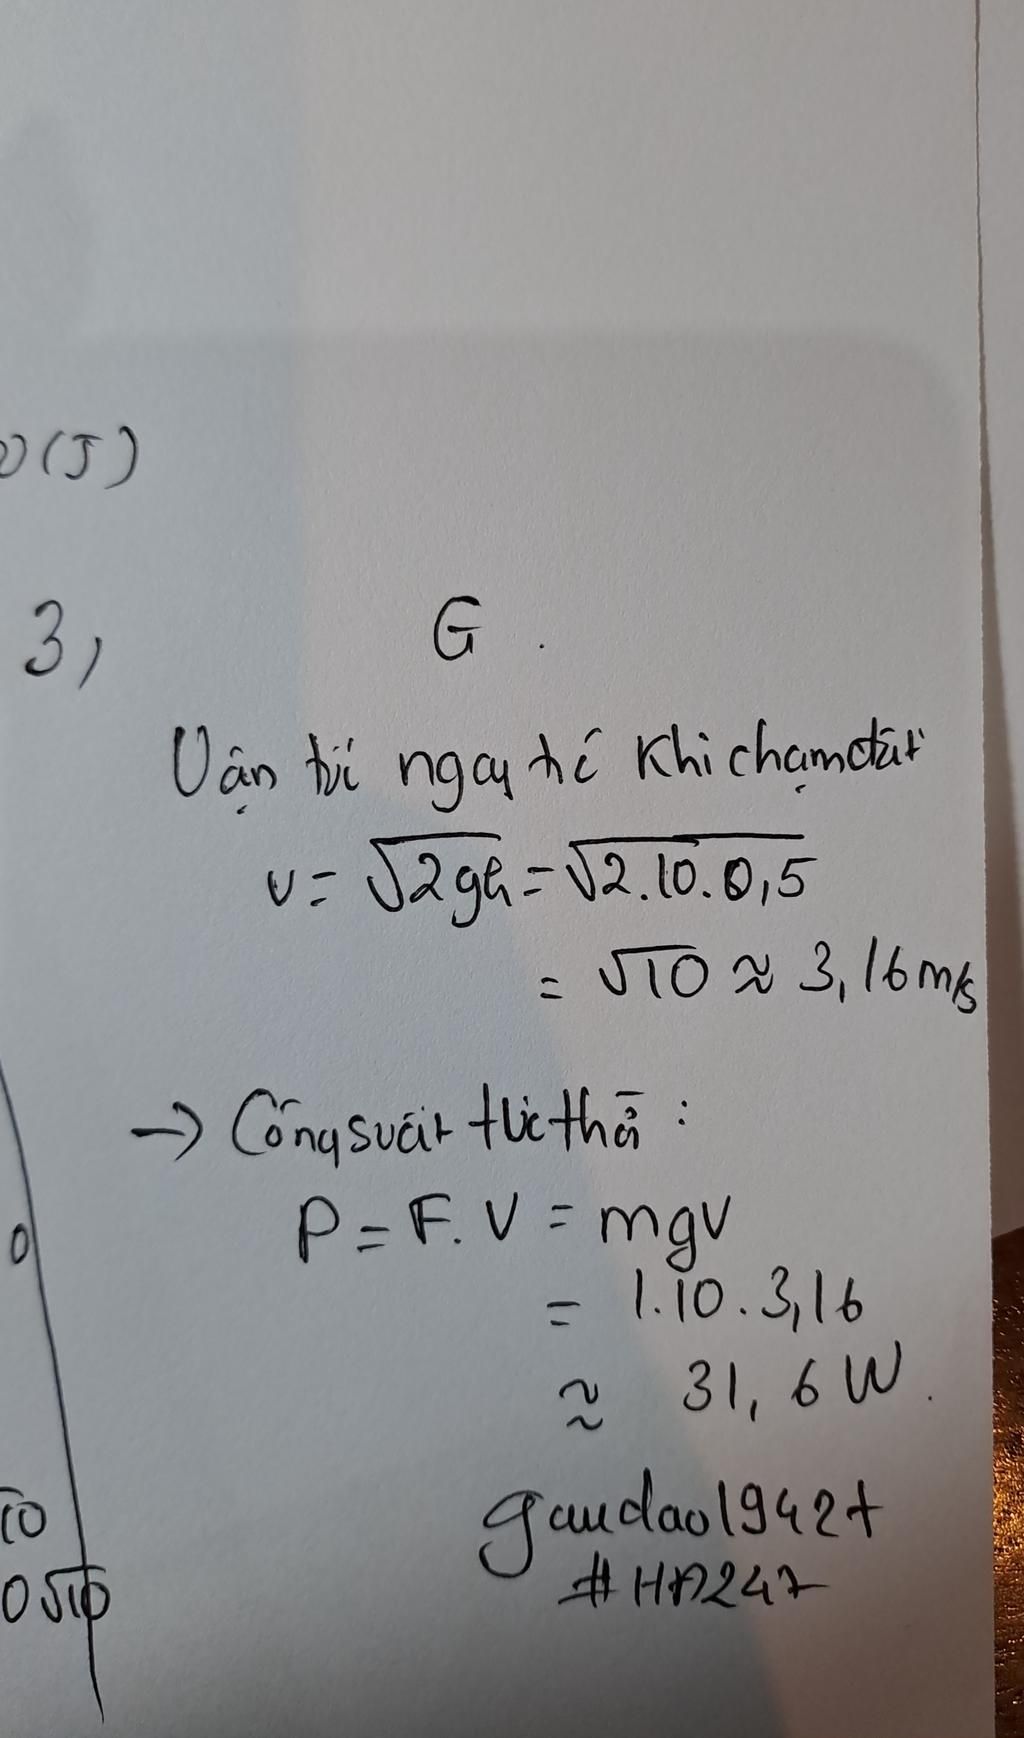 (J)
3,
G.
Vận tốc ngay trc khi chạm đất
v = √2gh = √2.10.0,5
= √10 ≈ 3,16 m/s
→ Công suất tức thời :
P = F. V = mgv
= 1.10.3,16
≈ 31,6 W.
0
10
0√10
gaudao1942t
#HA247